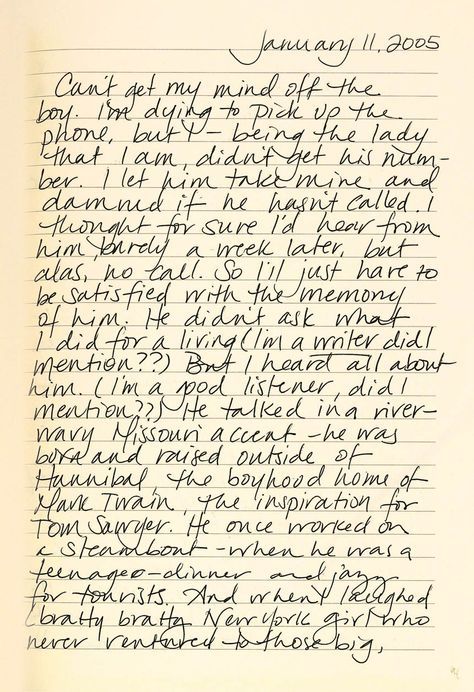 January 11, 2005
Can't get my mind off the
boy. I'm dying to pick up the
phone, but I - being the lady
that I am, didn't get his num-
ber. I let him take mine and
damned if he hasn't called. I
thought for sure I'd hear from
him, barely a week later, but
alas, no call. So I'll just have to
be satisfied with the memory
of him. He didn't ask what
I did for a living (I'm a writer did I
mention??) But I heard all about
him. (I'm a good listener, did I
mention??) He talked in a river-
wavy Missouri accent - he was
born and raised outside of
Hannibal, the boyhood home of
Mark Twain, the inspiration for
Tom Sawyer. He once worked on
a steamboat - when he was a
teenager - dinner and jazz
for tourists. And when I laughed
(bratty bratty New York girl who
never ventured to those big,